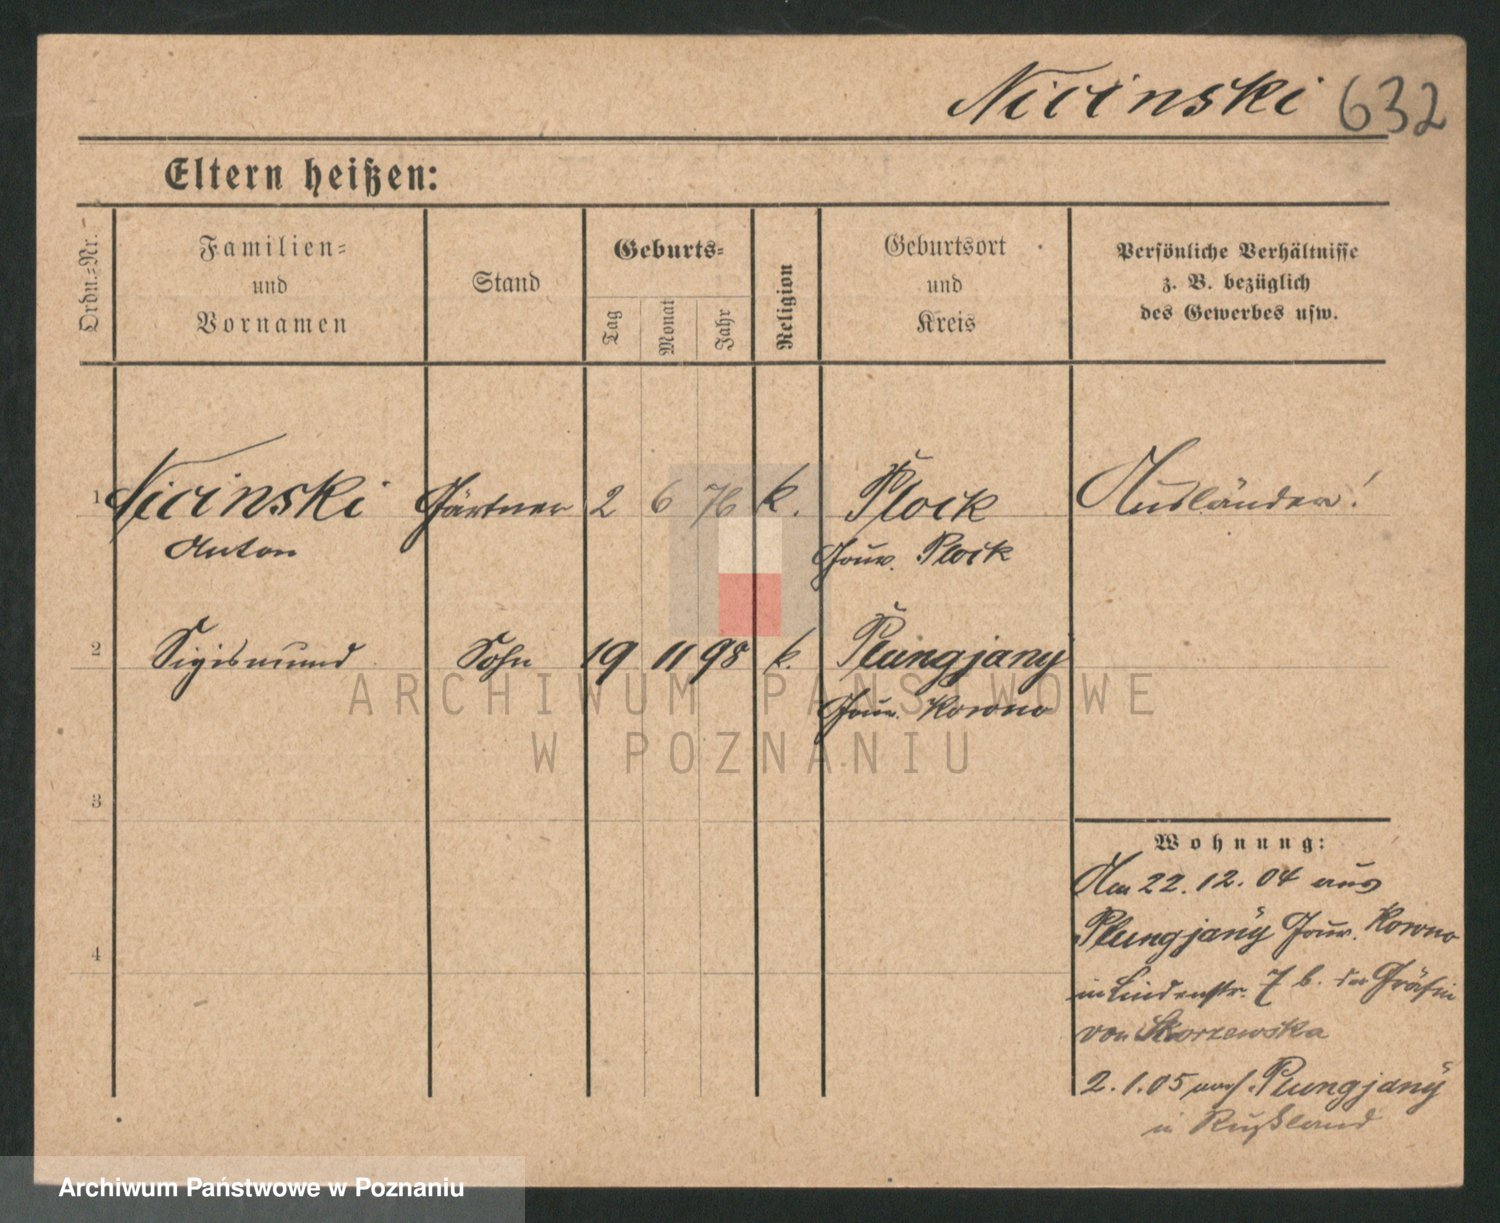 Nicinski 632
Eltern heißen:
Ordn.=Nr.
Familien=
und
Vornamen
Stand
Geburts=
Tag
Monat
Jahr
Religion
Geburtsort
und
Kreis
Persönliche Verhältnisse
z. B. bezüglich
des Gewerbes usw.
1 Nicinski Gärtner 2 6 76 k. Plock Ausländer!
Anton Gouv. Plock
2 Sigismund Sohn 19 11 98 k. Plungjany
Gouv. Kowno
3
4
Wohnung:
Am 22.12.04 aus
Plungjany Gouv. Kowno
in Lindenstr. 7 b. der Gräfin
von Skorzewska
2.1.05 nach Plungjany
in Rußland
ARCHIWUM PAŃSTWOWE
W POZNANIU
Archiwum Państwowe w Poznaniu